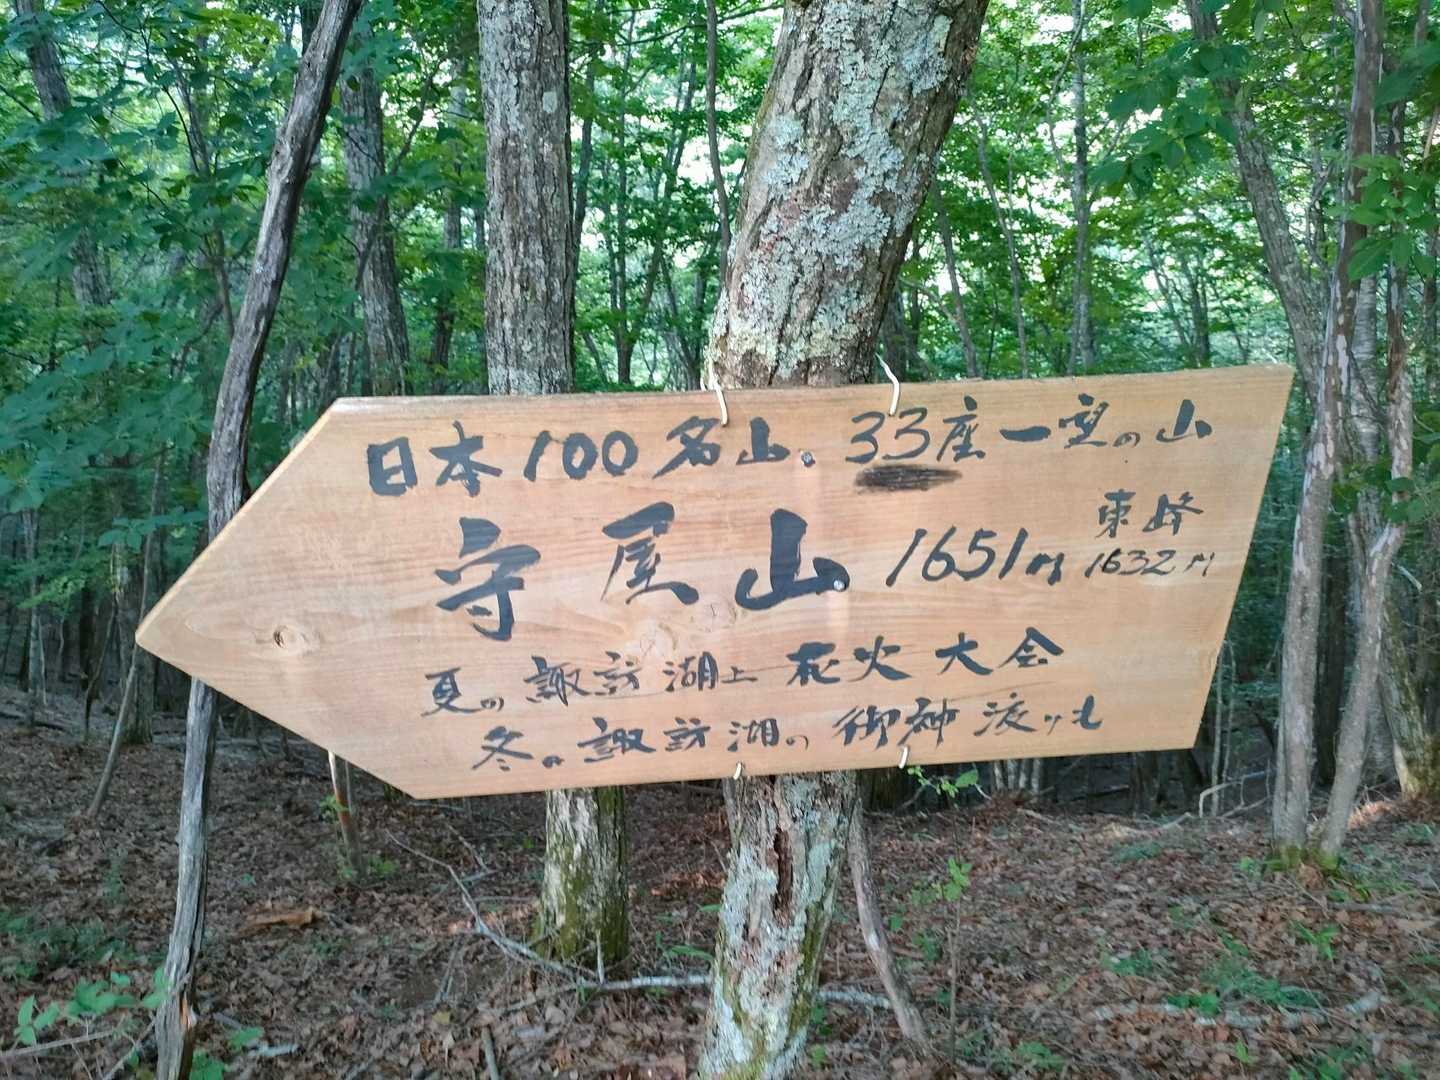 日本100名山。33座一望の山
守屋山 1651m 東峰 1632m
夏の諏訪湖上花火大会
冬の諏訪湖の御神渡りも